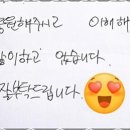 원해주시고 이해해
많이하고 있습니다.
잘부탁드립니다.